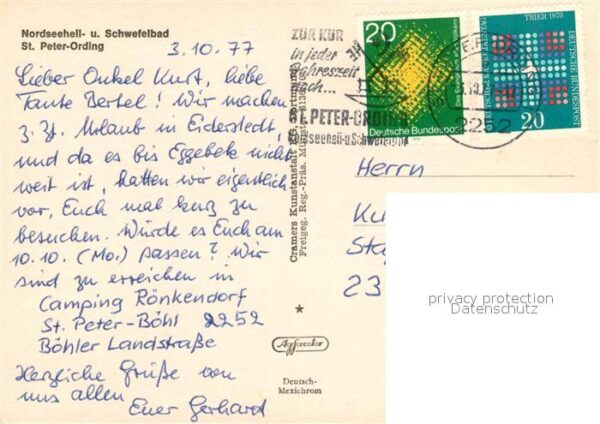 Nordseeheil- u. Schwefelbad
St. Peter-Ording
3.10.77
Lieber Onkel Kurt, liebe
Tante Bertel! Wir machen
z. Zt. Urlaub in Eiderstedt,
und da es bis Eggebek nicht
weit ist, hatten wir eigentlich
vor, Euch mal kurz zu
besuchen. Würde es Euch am
10.10. (Mo.) passen? Wir
sind zu erreichen in
Camping Rönkendorf
St. Peter-Böhl 2252
Böhler Landstraße
Herzliche Grüße von
uns allen
Euer Gerhard
Cramers Kunstanstalt KG, Dortmund
Freigeg. Reg.-Präs. Münster
Agfacolor
Deutsch-
Mexichrom
ZUR KUR
in jeder
Jahreszeit
nach...
ST. PETER-ORDING
Nordseeheil-u.Schwefelbad
20
Deutsche Bundespost
TRIER 1970
DEUTSCHE BUNDESPOST
20
2252
Herrn
Ku
Sta
23
privacy protection
Datenschutz